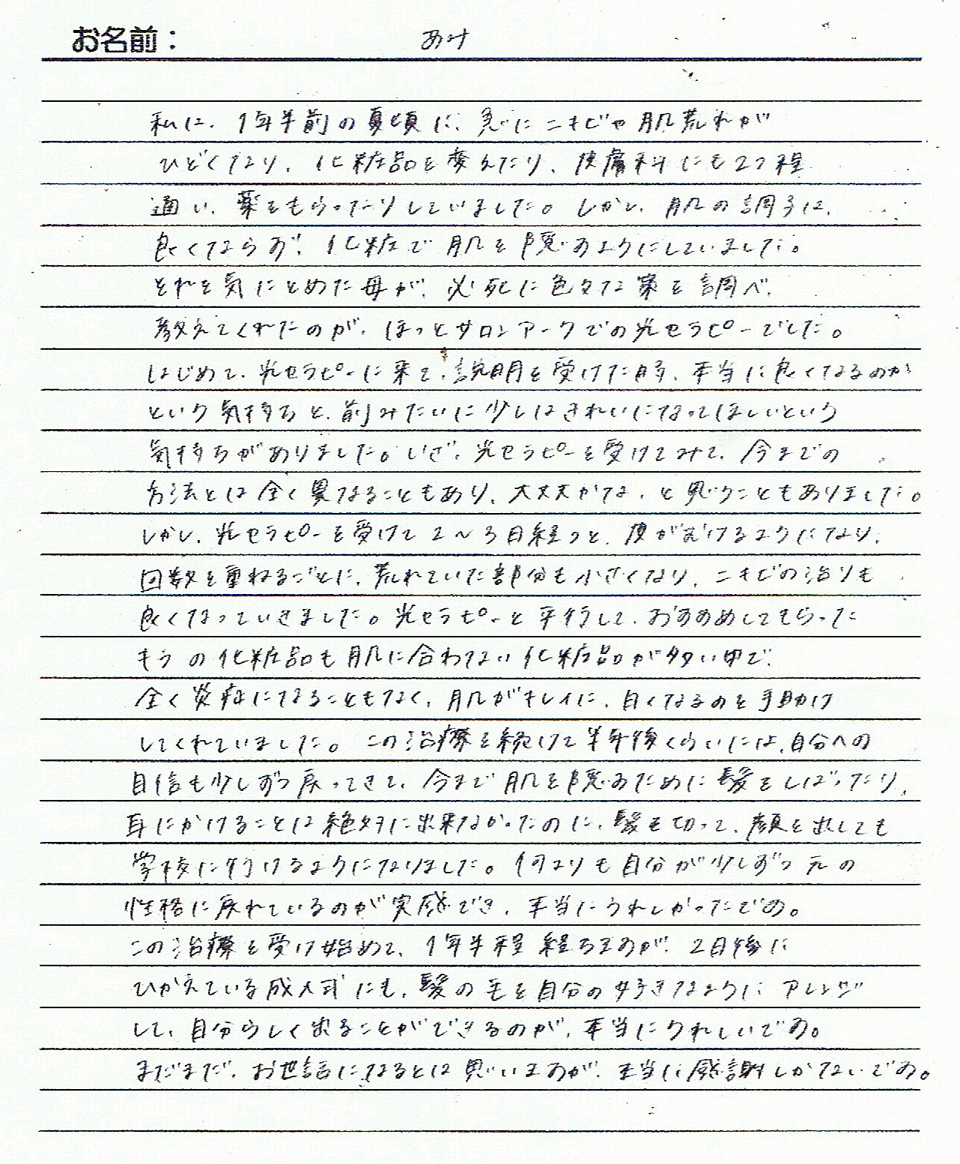 お名前： あみ
私は、1年半前の夏頃に、急にニキビや肌荒れが
ひどくなり、化粧品を変えたり、皮膚科にも2つ程
通い、薬をもらったりしていました。しかし、肌の調子は、
良くならず、化粧で肌を隠すようにしていました。
それを気にとめた母が、必死に色々な案を調べ、
教えてくれたのが、ほっとサロンアークでの光セラピーでした。
はじめて、光セラピーに来て、説明を受けた時、本当に良くなるのか
という気持ちと、前みたいに少しはきれいになってほしいという
気持ちがありました。いざ、光セラピーを受けてみて、今までの
方法とは全く異なることもあり、大丈夫かな、と思うこともありました。
しかし、光セラピーを受けて2〜3日経つと、皮がむけるようになり、
回数を重ねるごとに、荒れていた部分も小さくなり、ニキビの治りも
良くなっていきました。光セラピーと平行して、おすすめしてもらった
キラの化粧品も肌に合わない化粧品が多い中で、
全く炎症になることもなく、肌がキレイに、白くなるのを手助け
してくれていました。この治療を続けて半年後くらいには、自分への
自信も少しずつ戻ってきて、今まで肌を隠すために髪をしばったり、
耳にかけることは絶対に出来なかったのに、髪も切って、顔を出しても
学校に行けるようになりました。何よりも自分が少しずつ元の
性格に戻れているのが実感でき、本当にうれしかったです。
この治療を受け始めて、1年半程経ちますが、2日後に
ひかえている成人式にも、髪の毛を自分の好きなようにアレンジ
して、自分らしく出ることができるのが、本当にうれしいです。
まだまだ、お世話になるとは思いますが、本当に感謝しかないです。